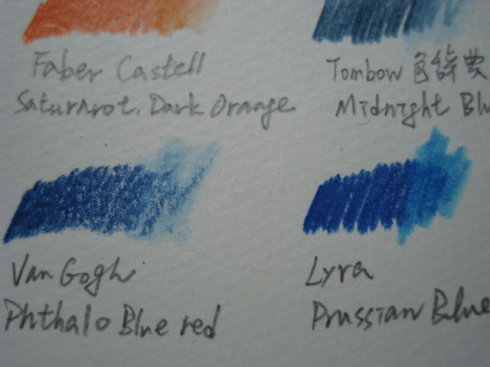 Faber Castell
Saturnrot. Dark Orange
Tombow 色辞典
Midnight Blu
Van Gogh
Phthalo Blue red
Lyra
Prussian Blue